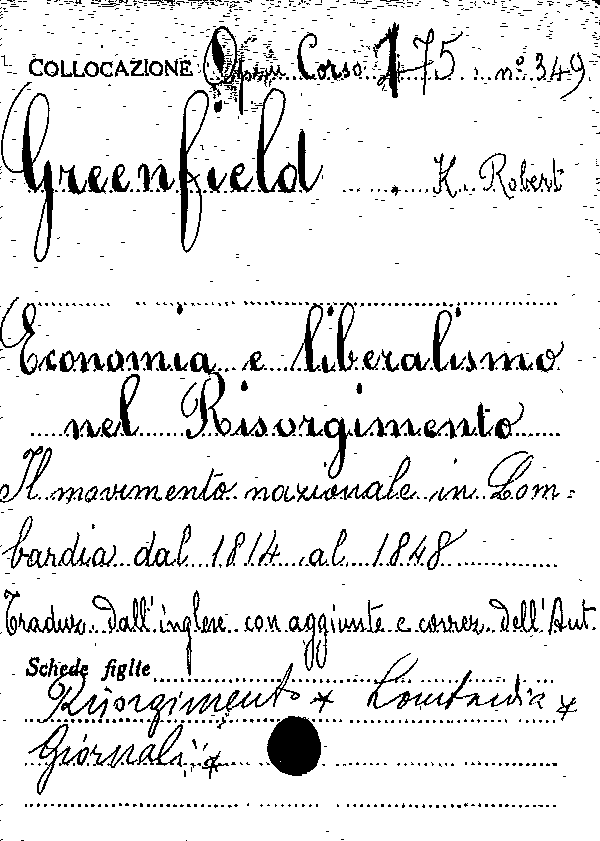 COLLOCAZIONE Corso 175 . nº 349
Greenfield K. Robert
Economia e liberalismo
nel Risorgimento
Il movimento nazionale in Lom=
bardia dal 1814 al 1848
Traduz. dall'inglese con aggiunte e correz. dell'Aut.
Schede figlie
Risorgimento * Lombardia *
Giornali *